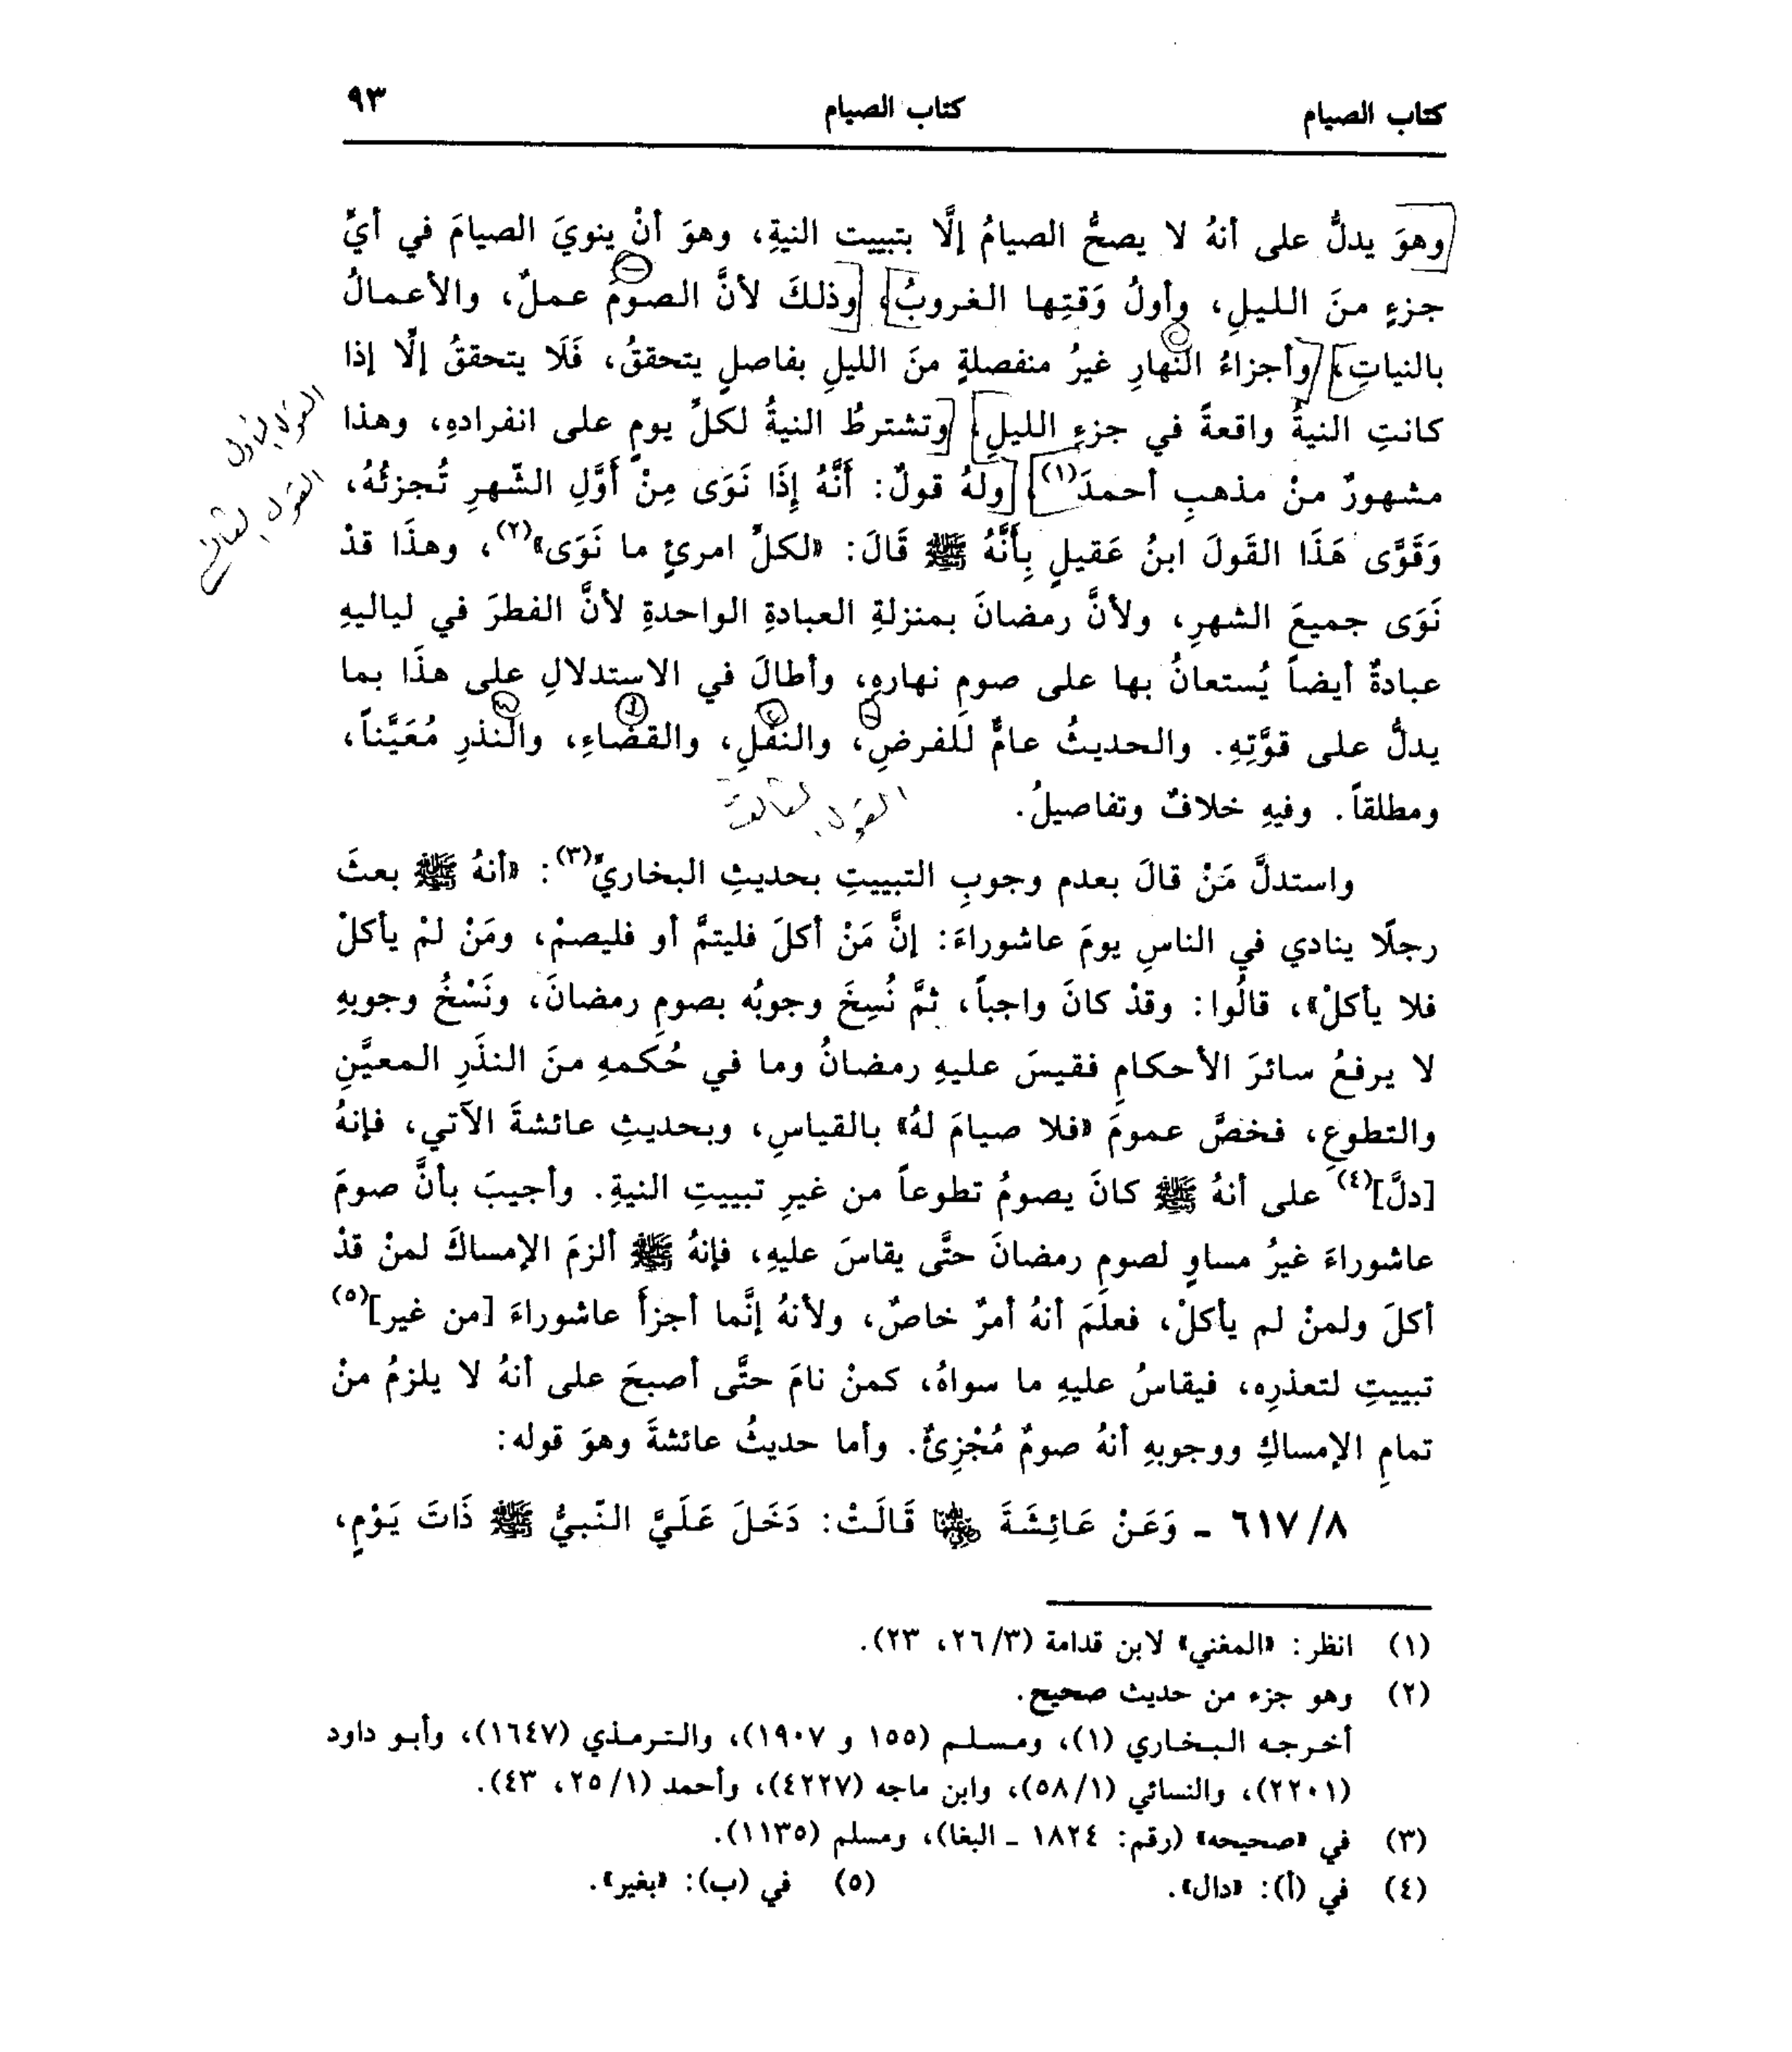 كتاب الصيام كتاب الصيام ٩٣
وهوَ يدلُّ على أنهُ لا يصحُّ الصيامُ إلَّا بتبييت النيةِ، وهوَ أنْ ينويَ الصيامَ في أيِّ
جزءٍ منَ الليلِ، وأولُ وَقتِها الغروبُ، وذلكَ لأنَّ الصومَ عملٌ، والأعمالُ
بالنياتِ، وأجزاءُ النهارِ غيرُ منفصلةٍ منَ الليلِ بفاصلٍ يتحققُ، فَلَا يتحققُ إلَّا إذا
كانتِ النيةُ واقعةً في جزءِ الليلِ، وتشترطُ النيةُ لكلِّ يومٍ على انفرادهِ، وهذا
القول الأول
مشهورٌ منْ مذهبِ أحمدَ(١)، ولهُ قولٌ: أَنَّهُ إِذَا نَوَى مِنْ أَوَّلِ الشّهرِ تُجزئُهُ،
القول الثاني
وَقَوَّى هَذَا القَولَ ابنُ عَقيلٍ بِأَنَّهُ ﷺ قَالَ: «لكلِّ امرئٍ ما نَوَى»(٢)، وهذَا قدْ
نَوَى جميعَ الشهرِ، ولأنَّ رمضانَ بمنزلةِ العبادةِ الواحدةِ لأنَّ الفطرَ في لياليهِ
عبادةٌ أيضاً يُستعانُ بها على صومِ نهارهِ، وأطالَ في الاستدلالِ على هذَا بما
يدلُّ على قوَّتِهِ. والحديثُ عامٌّ للفرضِ، والنفْلِ، والقضَاءِ، والنذرِ مُعَيَّناً،
ومطلقاً. وفيهِ خلافٌ وتفاصيلُ.
القول الثالث
واستدلَّ مَنْ قالَ بعدم وجوبِ التبييتِ بحديثِ البخاريِّ(٣): «أنهُ ﷺ بعثَ
رجلًا ينادي في الناسِ يومَ عاشوراءَ: إنَّ مَنْ أكلَ فليتمَّ أو فليصمْ، ومَنْ لمْ يأكلْ
فلا يأكلْ»، قالُوا: وقدْ كانَ واجباً، ثمَّ نُسِخَ وجوبُه بصومِ رمضانَ، ونَسْخُ وجوبهِ
لا يرفعُ سائرَ الأحكامِ فقيسَ عليهِ رمضانُ وما في حُكمهِ منَ النذَرِ المعيَّنِ
والتطوعِ، فخصَّ عمومَ «فلا صيامَ لهُ» بالقياسِ، وبحديثِ عائشةَ الآتي، فإنهُ
[دلَّ](٤) على أنهُ ﷺ كانَ يصومُ تطوعاً من غيرِ تبييتِ النيةِ. وأجيبَ بأنَّ صومَ
عاشوراءَ غيرُ مساوٍ لصومِ رمضانَ حتَّى يقاسَ عليهِ، فإنهُ ﷺ ألزمَ الإمساكَ لمنْ قدْ
أكلَ ولمنْ لم يأكلْ، فعلمَ أنهُ أمرٌ خاصٌ، ولأنهُ إنَّما أجزأَ عاشوراءَ [من غير](٥)
تبييتِ لتعذرِه، فيقاسُ عليهِ ما سواهُ، كمنْ نامَ حتَّى أصبحَ على أنهُ لا يلزمُ منْ
تمامِ الإمساكِ ووجوبهِ أنهُ صومٌ مُجْزِئٌ. وأما حديثُ عائشةَ وهوَ قوله:
٨/ ٦١٧ ـ وَعَنْ عَائِشَةَ رضي الله عنها قَالَتْ: دَخَلَ عَلَيَّ النّبيُّ ﷺ ذَاتَ يَوْمٍ،
(١) انظر: «المغني» لابن قدامة (٣/ ٢٦، ٢٣).
(٢) وهو جزء من حديث صحيح.
أخرجه البخاري (١)، ومسلم (١٥٥ و ١٩٠٧)، والترمذي (١٦٤٧)، وأبو داود
(٢٢٠١)، والنسائي (١/ ٥٨)، وابن ماجه (٤٢٢٧)، وأحمد (١/ ٢٥، ٤٣).
(٣) في «صحيحه» (رقم: ١٨٢٤ ـ البغا)، ومسلم (١١٣٥).
(٤) في (أ): «دال». (٥) في (ب): «بغير».